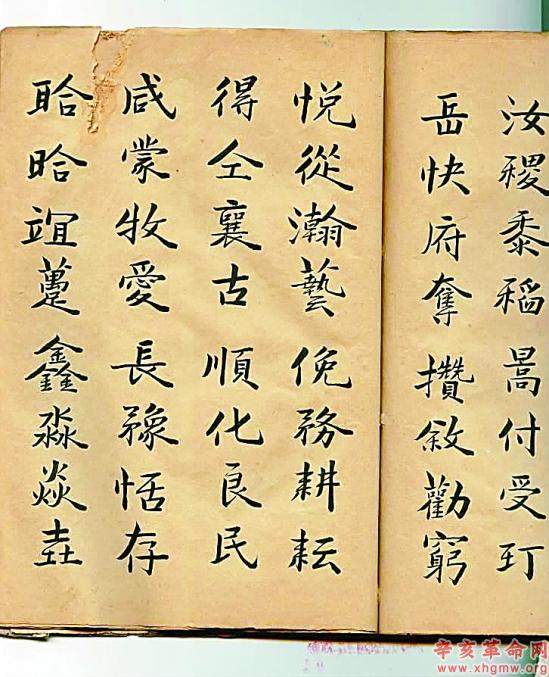 汝稷黍稻暠付受玎
岳快府奪攢敘勸窮
悅從瀚藝俛務耕耘
得仝襄古順化良民
咸蒙牧愛長豫恬存
鑫淼焱垚
辛亥革命网
www.xhgmw.org